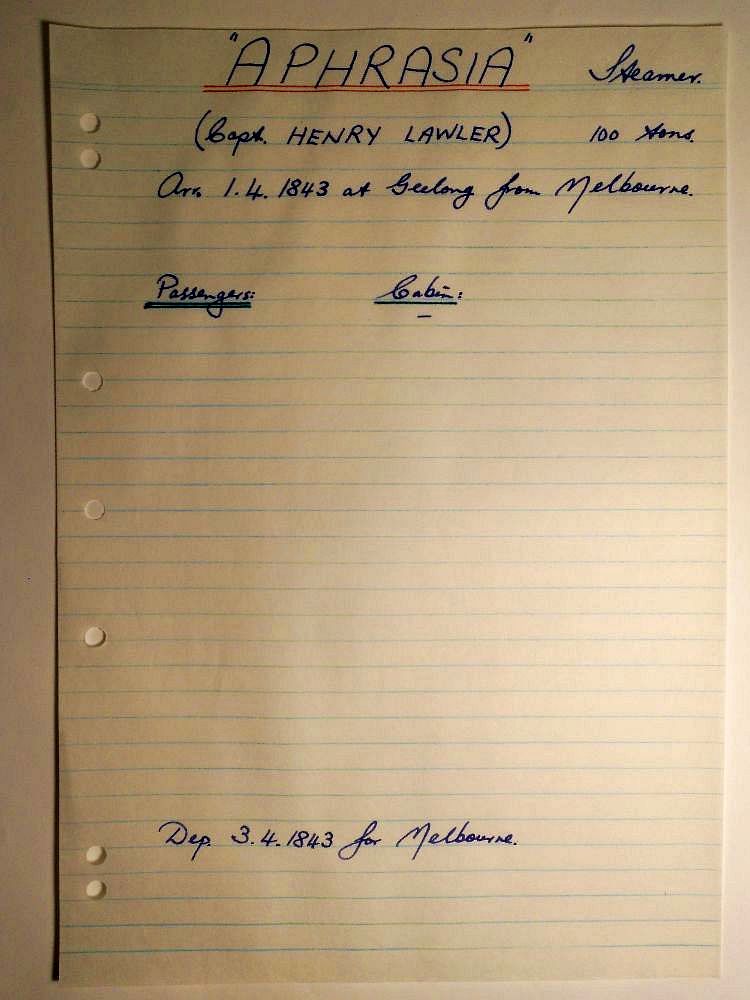 "APHRASIA" Steamer.
(Capt. HENRY LAWLER) 100 tons.
Arr. 1.4.1843 at Geelong from Melbourne.
Passengers: Cabin:
–
Dep. 3.4.1843 for Melbourne.